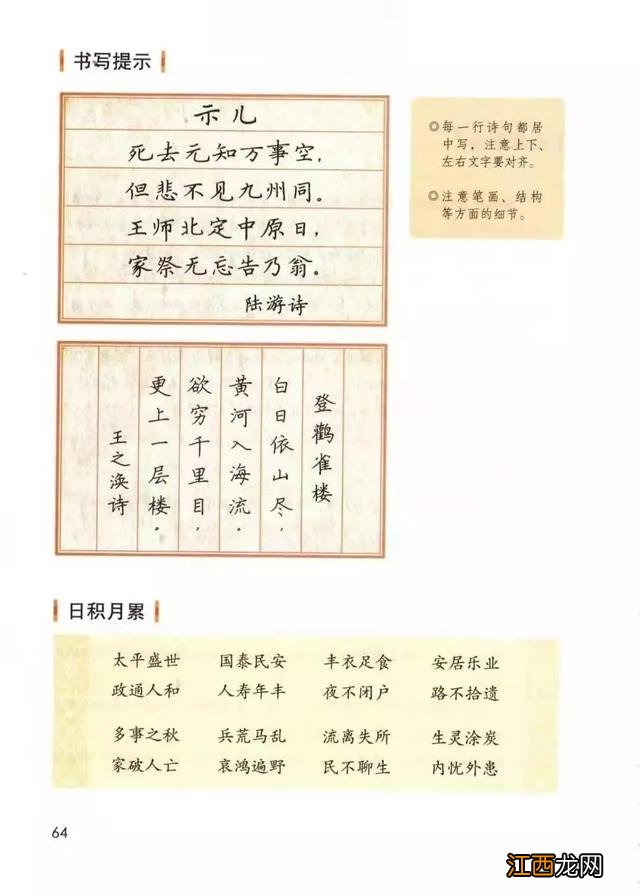 书写提示
示儿
死去元知万事空，
但悲不见九州同。
王师北定中原日，
家祭无忘告乃翁。
陆游诗
◎每一行诗句都居
中写，注意上下、
左右文字要对齐。
◎注意笔画、结构
等方面的细节。
登鹳雀楼
白日依山尽，
黄河入海流。
欲穷千里目，
更上一层楼。
王之涣诗
日积月累
太平盛世 国泰民安 丰衣足食 安居乐业
政通人和 人寿年丰 夜不闭户 路不拾遗
多事之秋 兵荒马乱 流离失所 生灵涂炭
家破人亡 哀鸿遍野 民不聊生 内忧外患
64
江西龙网